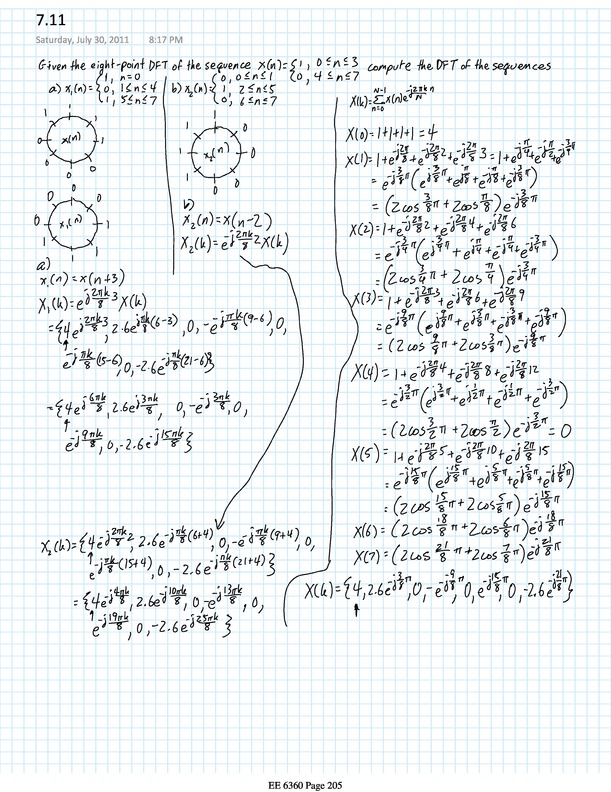 7.11
Saturday, July 30, 2011 8:17 PM
Given the eight-point DFT of the sequence x(n)={1, 0≤n≤3 compute the DFT of the sequences
{0, 4≤n≤7
a) x₁(n)={1, n=0
{0, 1≤n≤4
{1, 5≤n≤7
b) x₂(n)={0, 0≤n≤1
{1, 2≤n≤5
{0, 6≤n≤7
x(n)
x₂(n)
x₁(n)
b)
X₂(n)=x(n-2)
X₂(k)=e^{-j2πk/8 2}X(k)
a)
x₁(n)=x(n+3)
X₁(k)=e^{j2πk/8 3}X(k)
={4e^{j2πk/8 3}, 2.6e^{jπk/8(6-3)}, 0, -e^{-jπk/8(9-6)}, 0,
e^{-jπk/8(15-6)}, 0, -2.6e^{-jπk/8(21-6)}}
={4e^{j6πk/8}, 2.6e^{j3πk/8}, 0, -e^{-j3πk/8}, 0,
e^{-j9πk/8}, 0, -2.6e^{-j15πk/8}}
X₂(k)={4e^{-j2πk/8 2}, 2.6e^{-jπk/8(6+4)}, 0, -e^{-jπk/8(9+4)}, 0,
e^{-jπk/8(15+4)}, 0, -2.6e^{-jπk/8(21+4)}}
={4e^{-j4πk/8}, 2.6e^{-j10πk/8}, 0, -e^{-j13πk/8}, 0,
e^{-j19πk/8}, 0, -2.6e^{-j25πk/8}}
X(k)=Σ_{n=0}^{N-1} x(n)e^{-j2πkn/N}
X(0)=1+1+1+1=4
X(1)=1+e^{-j2π/8}+e^{-j2π/8 2}+e^{-j2π/8 3}=1+e^{-jπ/4}+e^{-jπ/2}+e^{-j3/4π}
=e^{-j3/8π}(e^{j3/8π}+e^{jπ/8}+e^{-jπ/8}+e^{-j3/8π})
=(2cos 3/8π+2cos π/8)e^{-j3/8π}
X(2)=1+e^{-j2π/8 2}+e^{-j2π/8 4}+e^{-j2π/8 6}
=e^{-j3/4π}(e^{j3/4π}+e^{jπ/4}+e^{-jπ/4}+e^{-j3/4π})
=(2cos 3/4π+2cos π/4)e^{-j3/4π}
X(3)=1+e^{-j2π/8 3}+e^{-j2π/8 6}+e^{-j2π/8 9}
=e^{-j9/8π}(e^{j9/8π}+e^{j3/8π}+e^{-j3/8π}+e^{-j9/8π})
=(2cos 9/8π+2cos 3/8π)e^{-j9/8π}
X(4)=1+e^{-j2π/8 4}+e^{-j2π/8 8}+e^{-j2π/8 12}
=e^{-j3/2π}(e^{j3/2π}+e^{j1/2π}+e^{-j1/2π}+e^{-j3/2π})
=(2cos 3/2π+2cos π/2)e^{-j3/2π}=0
X(5)=1+e^{-j2π/8 5}+e^{-j2π/8 10}+e^{-j2π/8 15}
=e^{-j15/8π}(e^{j15/8π}+e^{j5/8π}+e^{-j5/8π}+e^{-j15/8π})
=(2cos 15/8π+2cos 5/8π)e^{-j15/8π}
X(6)=(2cos 18/8π+2cos 6/8π)e^{-j18/8π}
X(7)=(2cos 21/8π+2cos 7/8π)e^{-j21/8π}
X(k)={4, 2.6e^{-j3/8π}, 0, -e^{-j9/8π}, 0, e^{-j15/8π}, 0, -2.6e^{-j21/8π}}
EE 6360 Page 205